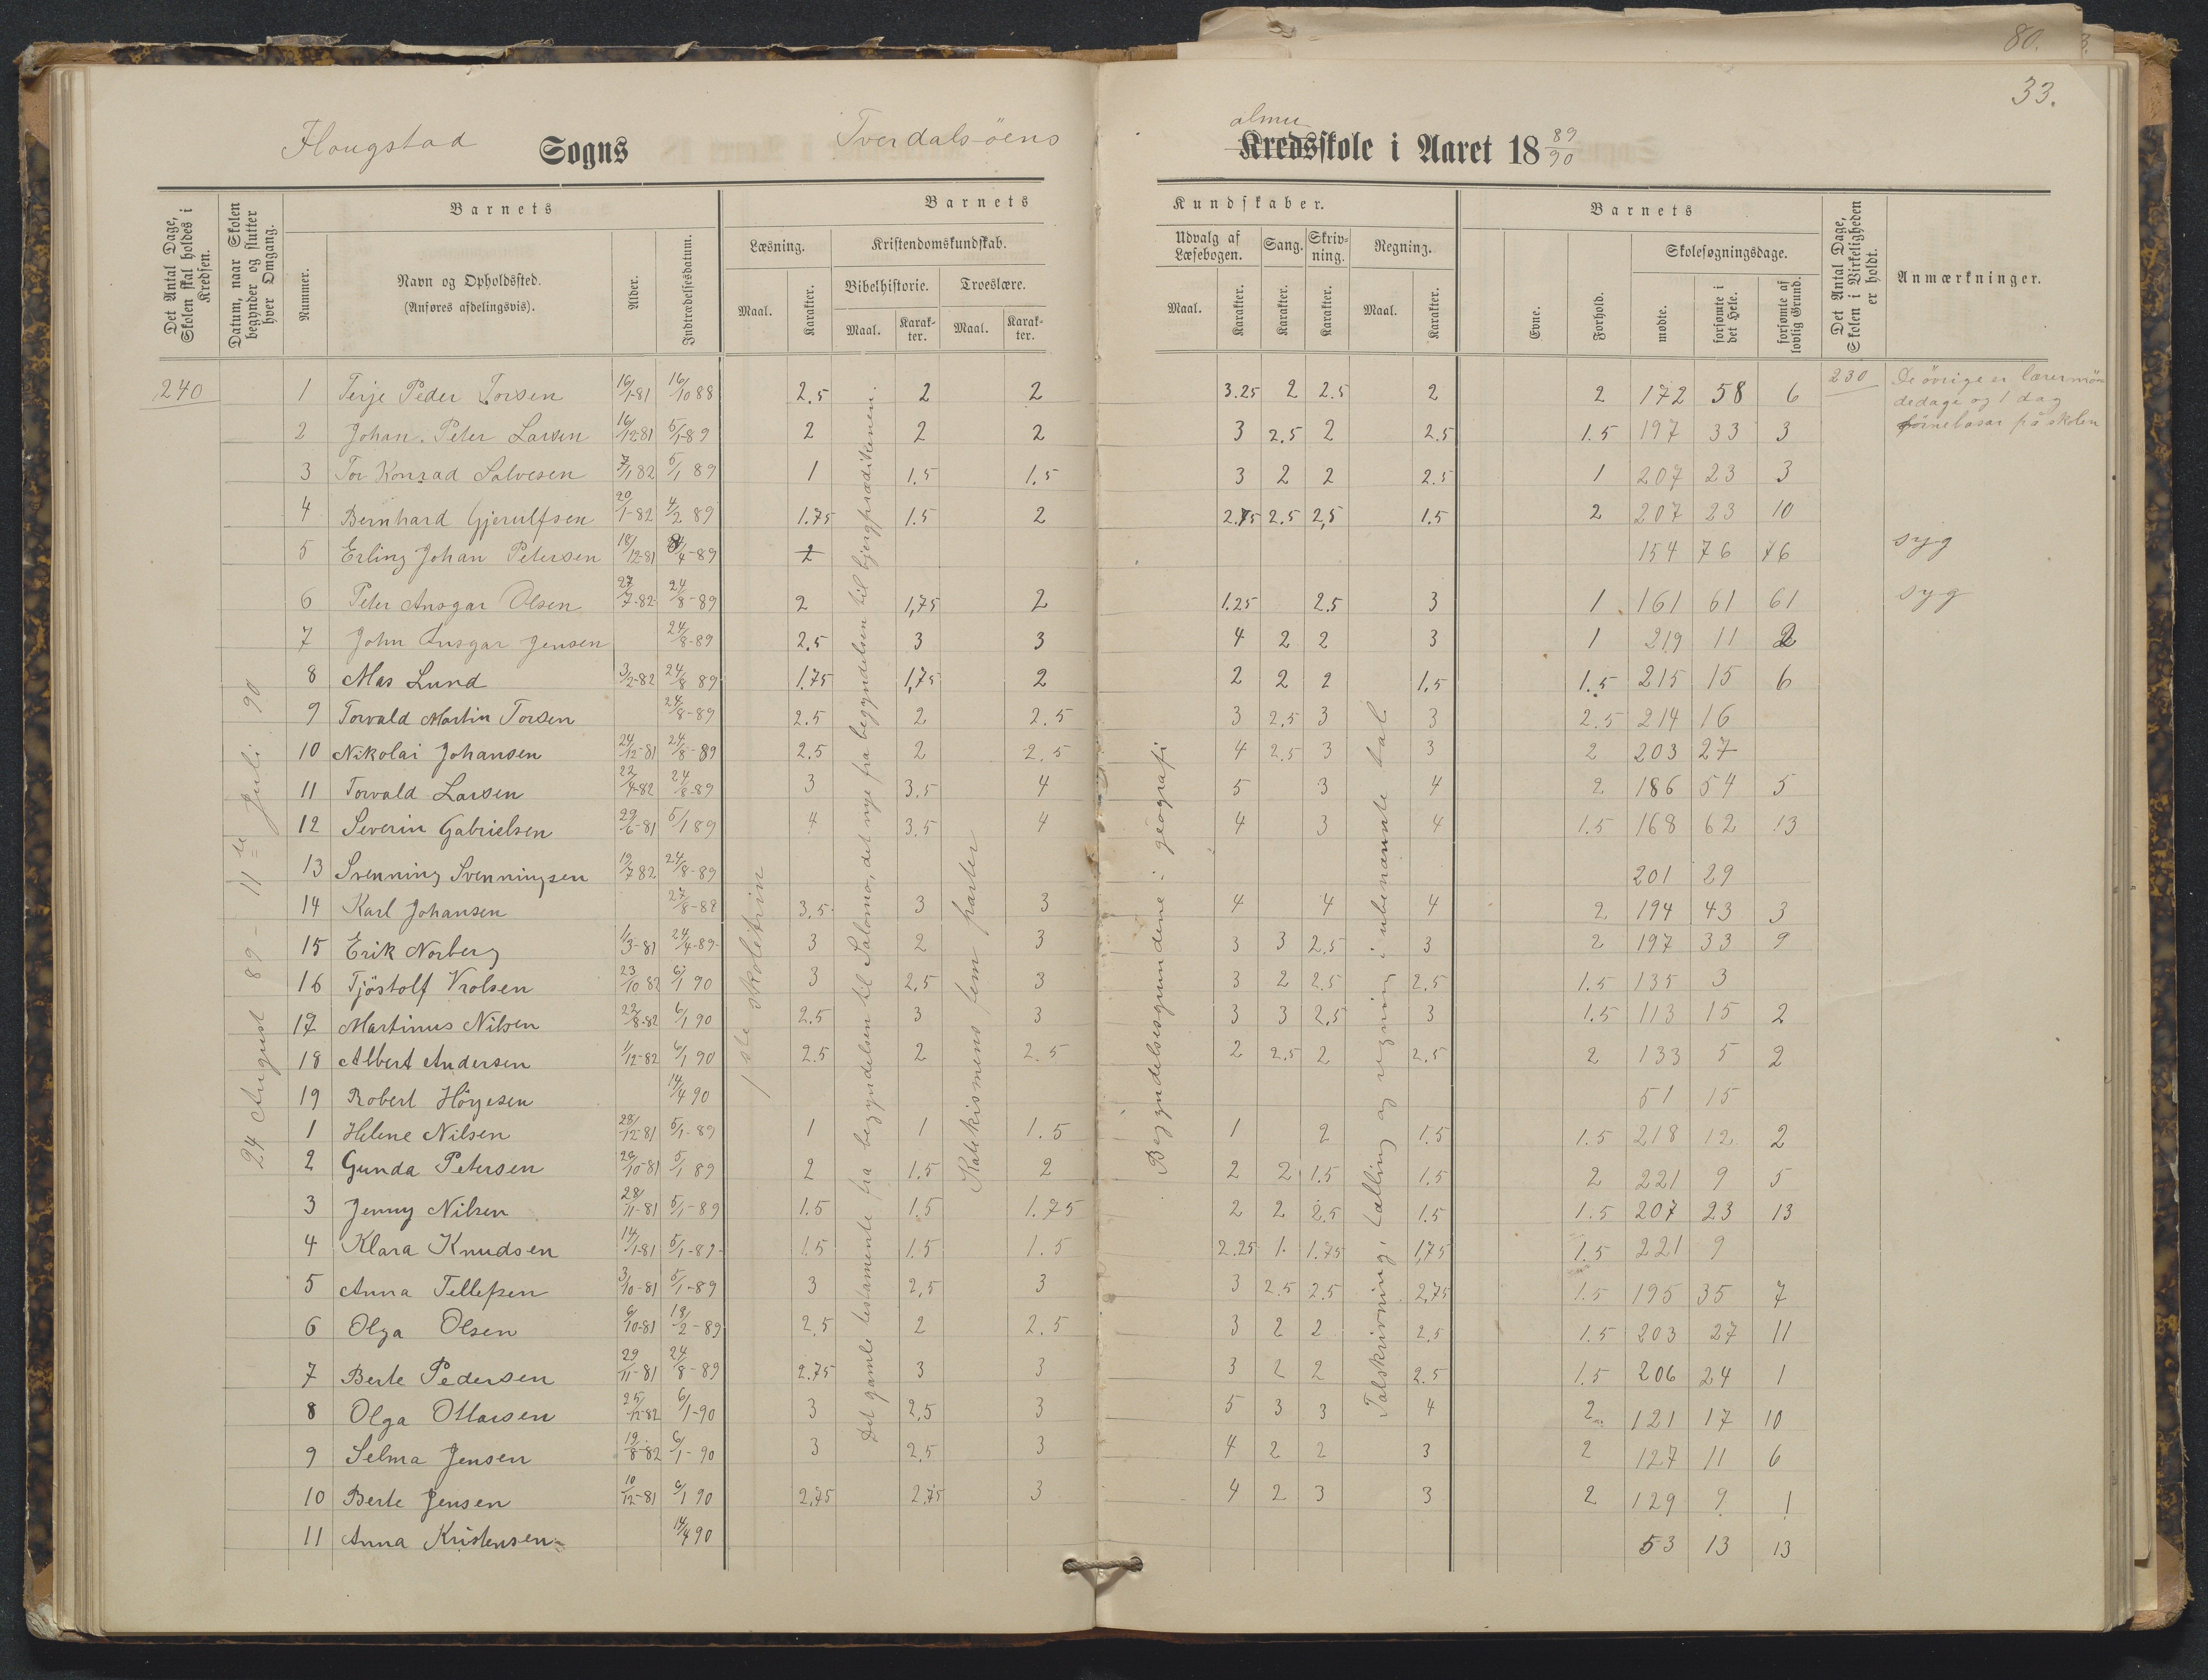 80.
33.
Flougstad Sogns Tverdals-öens
almu
Kredsskole i Aaret 18 89/90
Det Antal Dage, Skolen skal holdes i Kredsen.
Datum, naar Skolen begynder og slutter hver Omgang.
Barnets
Nummer.
Navn og Opholdssted.
(Anføres afdelingsvis).
Alder.
Indtrædelsesdatum.
Barnets Kundskaber.
Læsning.
Maal. Karakter.
Kristendomskundskab.
Bibelhistorie. Troeslære.
Maal. Karakter. Maal. Karakter.
Udvalg af Læsebogen.
Maal. Karakter.
Sang.
Karakter.
Skrivning.
Karakter.
Regning.
Maal. Karakter.
Barnets
Evne.
Forhold.
Skolesøgningsdage.
mødte.
forsømte i det Hele.
forsømte af lovlig Grund.
Det Antal Dage, Skolen i Virkeligheden er holdt.
Anmærkninger.
240
24 August 89 - 11te Juli 90
1ste skoletrin
Det gamle testamente fra begyndelsen til Salomo, det nye fra begyndelsen til bjergprædikenen.
Katekismens fem parter
Begyndelsesgrundene i geografi
Talskrivning, tælling og regning i ubenævnte tal
1 Terje Peder Torsen 16/1-81 16/10 88 2.5 2 2 3.25 2 2.5 2 2 172 58 6 230 De övrige er lærermö-
dedage og 1 dag
börnebasar på skolen
2 Johan Peter Larsen 16/12-81 5/1-89 2 2 2 3 2.5 2 2.5 1.5 197 33 3
3 Tor Konrad Salvesen 7/1 82 5/1 89 1 1.5 1.5 3 2 2 2.5 1 207 23 3
4 Bernhard Gjerulfsen 20/1-82 4/2 89 1.75 1.5 2 2.75 2.5 2,5 1.5 2 207 23 10
5 Erling Johan Petersen 18/12-81 /4-89 2 154 76 76 syg
6 Peter Ansgar Olsen 27/7-82 24/8-89 2 1,75 2 1.25 2.5 3 1 161 61 61 syg
7 John Ansgar Jensen 24/8-89 2.5 3 3 4 2 2 3 1 219 11 2
8 Mas Lund 3/2-82 24/8 89 1.75 1,75 2 2 2 2 1.5 1.5 215 15 6
9 Torvald Martin Torsen 24/8-89 2.5 2 2.5 3 2.5 3 3 2.5 214 16
10 Nikolai Johansen 24/12-81 24/8-89 2.5 2 2.5 4 2.5 3 3 2 203 27
11 Torvald Larsen 22/4-82 24/8-89 3 3.5 4 5 3 4 2 186 54 5
12 Severin Gabrielsen 29/6-81 5/1 89 4 3.5 4 4 3 4 1.5 168 62 13
13 Svenning Svenningsen 19/7 82 24/8-89 201 29
14 Karl Johansen 27/8-88 3.5 3 3 4 4 4 2 194 43 3
15 Erik Norberg 1/3-81 24/4-89 3 2 3 3 3 2.5 3 2 197 33 9
16 Tjöstolf Vrolsen 23/10 82 6/1 90 3 2.5 3 3 2 2.5 2.5 1.5 135 3
17 Martinus Nilsen 22/8-82 6/1 90 2.5 3 3 3 3 2.5 3 1.5 113 15 2
18 Albert Andersen 1/12-82 6/1 90 2.5 2 2.5 2 2.5 2 2.5 2 133 5 2
19 Robert Höyesen 14/4 90 51 15
1 Helene Nilsen 28/12-81 5/1-89 1 1 1.5 1 2 1.5 1.5 218 12 2
2 Gunda Petersen 20/10-81 5/1 89 2 1.5 2 2 2 1.5 1.5 2 221 9 5
3 Jenny Nilsen 28/11-81 5/1-89 1.5 1.5 1.75 2 2 2.5 1.5 1.5 207 23 13
4 Klara Knudsen 14/1-81 5/1-89 1.5 1.5 1.5 2.25 1. 1.75 1,75 1.5 221 9
5 Anna Tellefsen 3/10-81 5/1-89 3 2,5 3 3 2.5 2.5 2,75 1.5 195 35 7
6 Olga Olsen 6/10-81 18/2-89 2.5 2 2.5 3 2 2 2.5 1.5 203 27 11
7 Berte Pedersen 29/11-81 24/8-89 2.75 3 3 3 2 2 2.5 1.5 206 24 1
8 Olga Ottarsen 25/12-82 6/1-90 3 2,5 3 5 3 3 4 2 121 17 10
9 Selma Jensen 19/8-82 6/1-90 3 2,5 3 4 2 2 3 2 127 11 6
10 Berte Jensen 10/12-81 6/1 90 2,75 2,75 3 4 2 3 3 2 129 9 1
11 Anna Kristensen 14/4 90 53 13 13